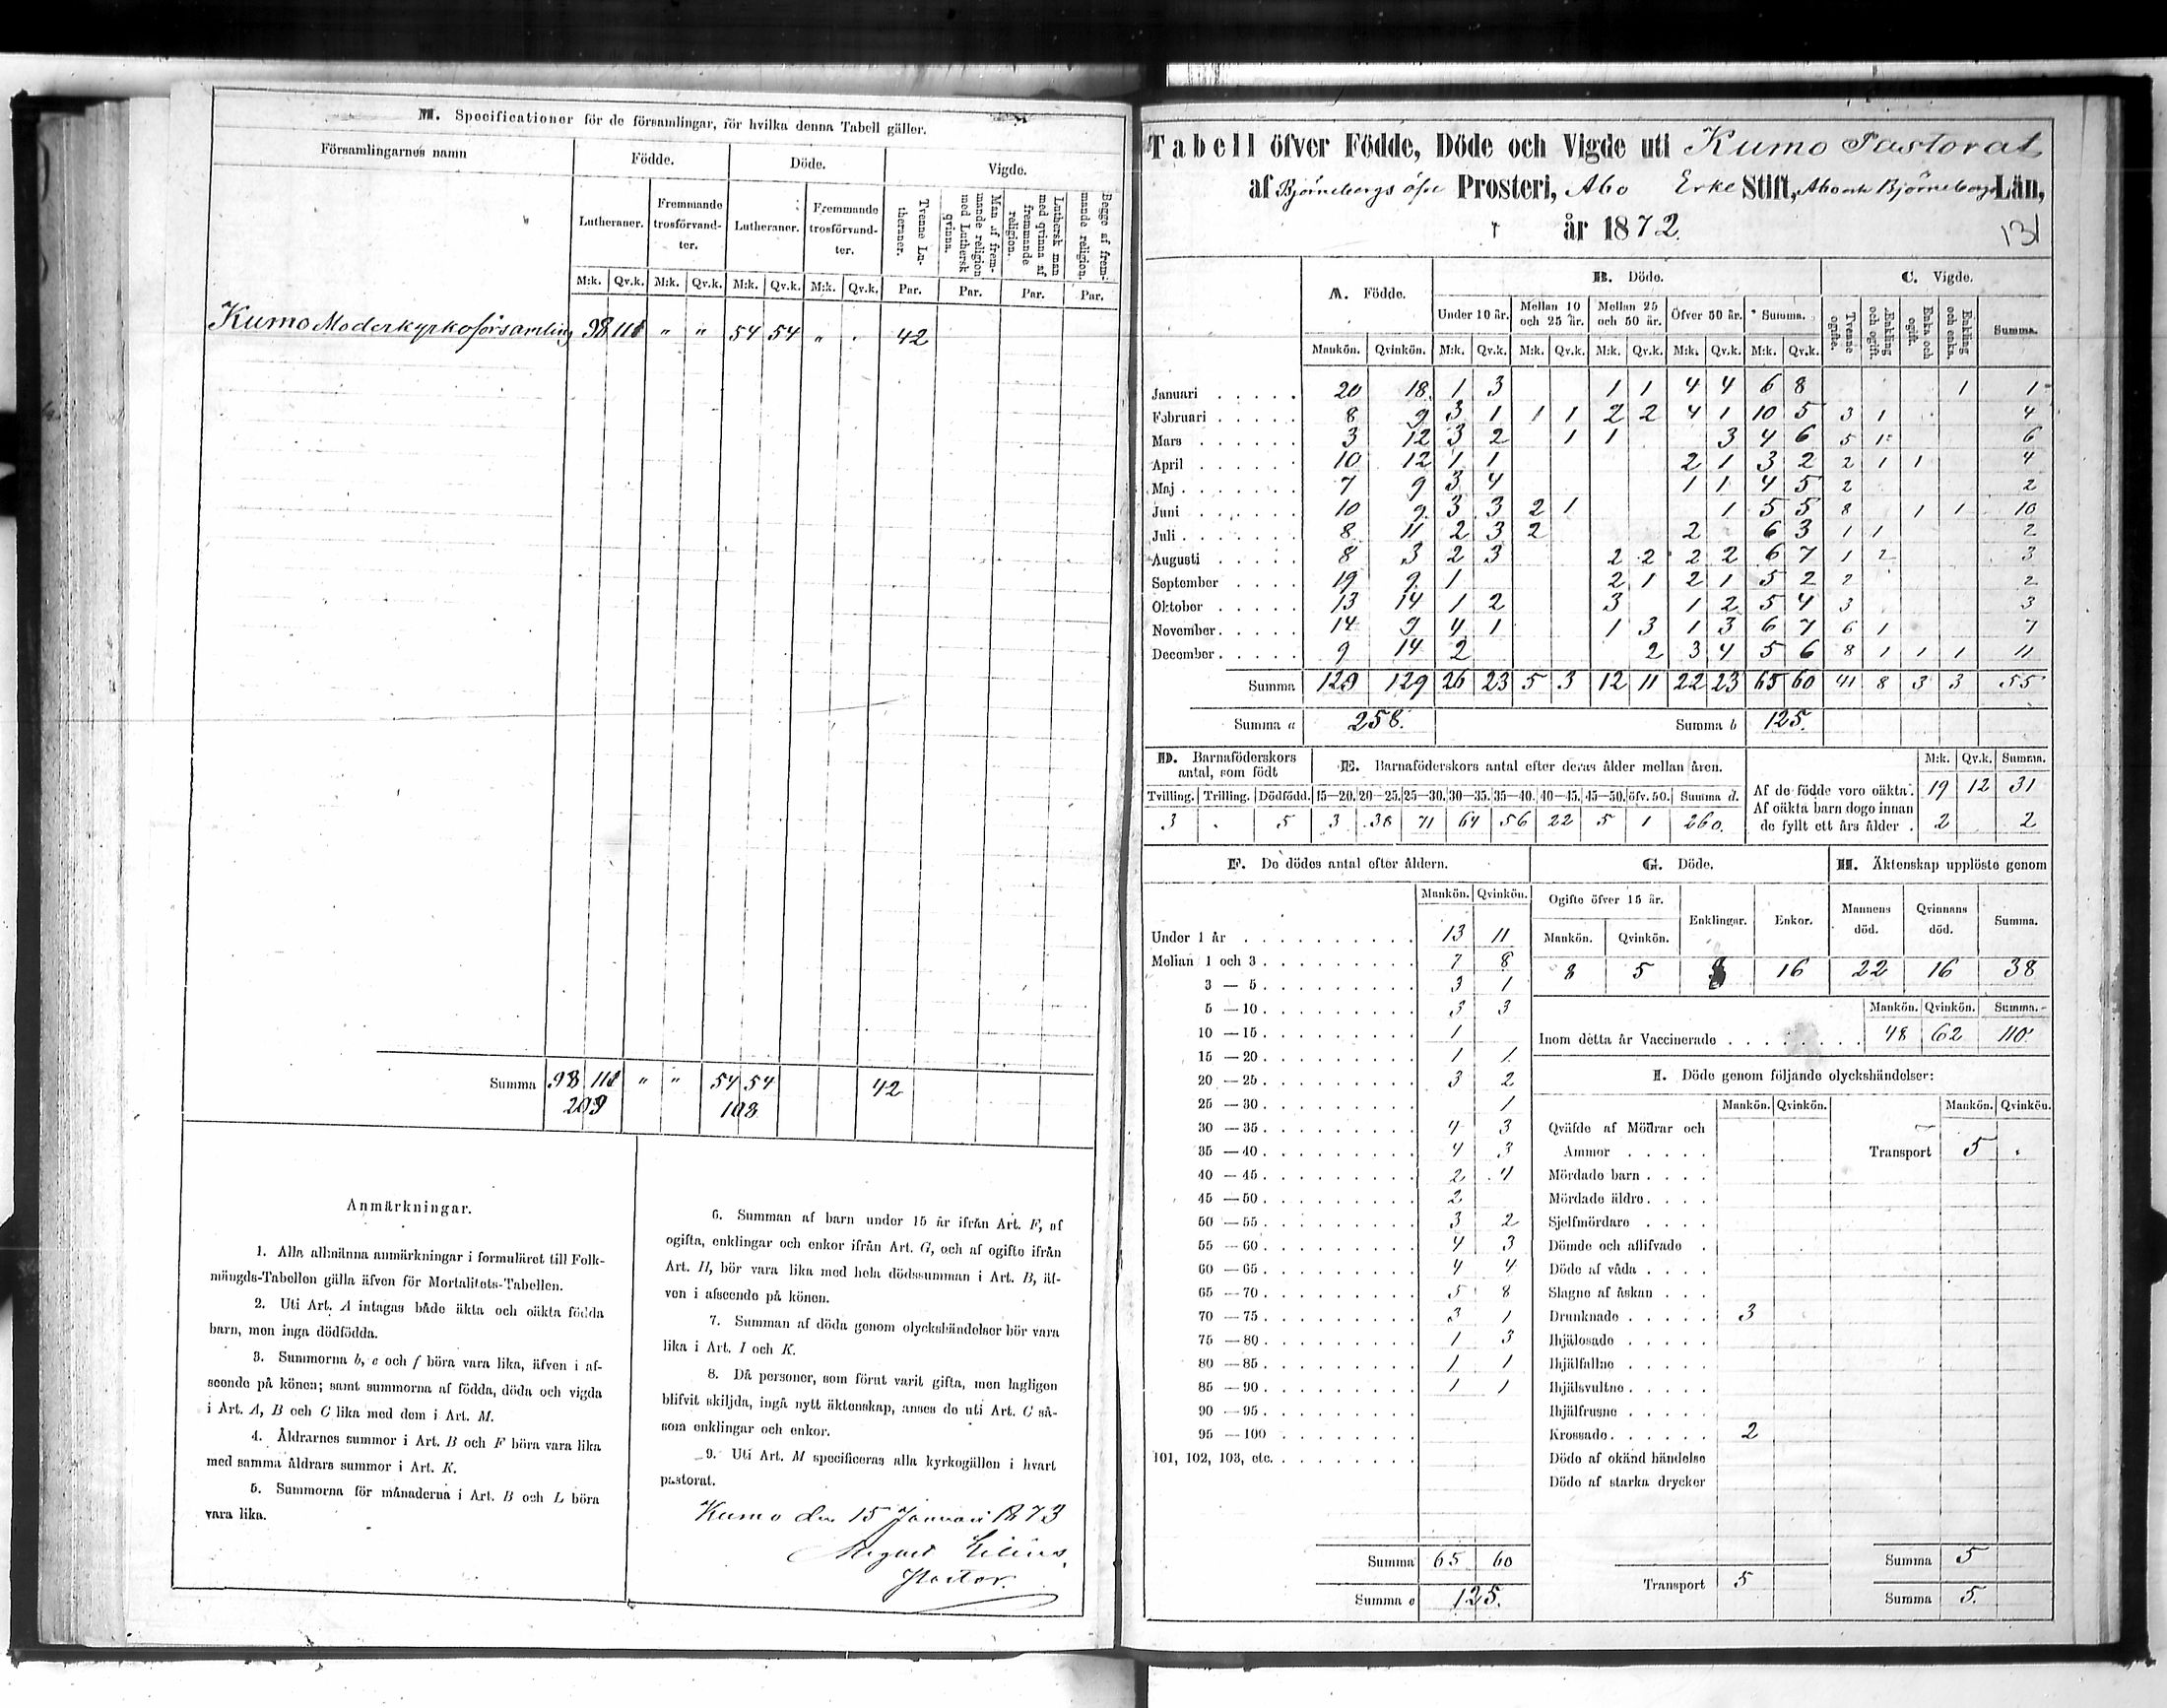 M. Specificationer för de församlingar, för hvilka denna Tabell gäller.
Församlingarnes namn | Födde. | Döde. | Vigde.
Lutheraner. | Fremmande trosförvandter. | Lutheraner. | Fremmande trosförvandter. | Tvenne Lutheraner. | Man af fremmande religion med Luthersk qvinna. | Luthersk man med qvinna af fremmande religion. | Begge af fremmande religion.
M:k. | Qv.k. | M:k. | Qv.k. | M:k. | Qv.k. | M:k. | Qv.k. | Par. | Par. | Par. | Par.
Kumo Moderkyrkoförsamling 98 111 " " 54 54 " . 42
Summa 98 111 " " 54 54 42
209 108
Anmärkningar.
1. Alla allmänna anmärkningar i formuläret till Folk-
mängds-Tabellen gälla äfven för Mortalitets-Tabellen.
2. Uti Art. A intagas både äkta och oäkta födda
barn, men inga dödfödda.
3. Summorna b, e och f böra vara lika, äfven i af-
seende på könen; samt summorna af födda, döda och vigda
i Art. A, B och C lika med dem i Art. M.
4. Åldrarnes summor i Art. B och F böra vara lika
med samma åldrars summor i Art. K.
5. Summorna för månaderna i Art. B och L böra
vara lika.
6. Summan af barn under 15 år ifrån Art. F, af
ogifta, enklingar och enkor ifrån Art. G, och af ogifte ifrån
Art. H, bör vara lika med hela dödssumman i Art. B, äf-
ven i afseende på könen.
7. Summan af döda genom olyckshändelser bör vara
lika i Art. I och K.
8. Då personer, som förut varit gifta, men lagligen
blifvit skiljda, ingå nytt äktenskap, anses de uti Art. C så-
som enklingar och enkor.
9. Uti Art. M specificeras alla kyrkogällen i hvart
pastorat.
Kumo den 15 Januari 1873
August Lilius
Pastor.
Tabell öfver Födde, Döde och Vigde uti Kumo Pastorat
af Björneborgs öfre Prosteri, Åbo Erke Stift, Åbo och Björneborgs Län,
år 1872.
131
A. Födde. | B. Döde. | C. Vigde.
Under 10 år. | Mellan 10 och 25 år. | Mellan 25 och 50 år. | Öfver 50 år. | Summa. | Tvenne ogifte. | Enkling och ogift. | Enka och ogift. | Enkling och enka. | Summa.
Mankön. | Qvinkön. | M:k. | Qv.k. | M:k. | Qv.k. | M:k. | Qv.k. | M:k. | Qv.k. | M:k. | Qv.k.
Januari 20 18 1 3 1 1 4 4 6 8 1 1
Februari 8 9 3 1 1 1 2 2 4 1 10 5 3 1 4
Mars 3 12 3 2 1 1 3 4 6 5 1 6
April 10 12 1 1 2 1 3 2 2 1 1 4
Maj 7 9 3 4 1 1 4 5 2 2
Juni 10 9 3 3 2 1 1 5 5 8 1 1 10
Juli 8 11 2 3 2 2 6 3 1 1 2
Augusti 8 3 2 3 2 2 2 2 6 7 1 2 3
September 19 9 1 2 1 2 1 5 2 2 2
Oktober 13 14 1 2 3 1 2 5 4 3 3
November 14 9 4 1 1 3 1 3 6 7 6 1 7
December 9 14 2 2 3 4 5 6 8 1 1 1 11
Summa 129 129 26 23 5 3 12 11 22 23 65 60 41 8 3 3 55
Summa a 258. Summa b 125.
D. Barnaföderskors antal, som födt | E. Barnaföderskors antal efter deras ålder mellan åren. | M:k. | Qv.k. | Summa.
Tvilling. | Trilling. | Dödfödd. | 15—20. | 20—25. | 25—30. | 30—35. | 35—40. | 40—45. | 45—50. | öfv. 50. | Summa d.
3 . 5 3 38 71 64 56 22 5 1 260.
Af de födde voro oäkta. 19 12 31
Af oäkta barn dogo innan
de fyllt ett års ålder . 2 2
F. De dödes antal efter åldern. | G. Döde. | H. Äktenskap upplöste genom
Mankön. | Qvinkön.
Under 1 år 13 11
Mellan 1 och 3 7 8
3 — 5 3 1
5 — 10 3 3
10 — 15 1
15 — 20 1 1
20 — 25 3 2
25 — 30 1
30 — 35 4 3
35 — 40 4 3
40 — 45 2 4
45 — 50 2
50 — 55 3 2
55 — 60 4 3
60 — 65 4 4
65 — 70 5 8
70 — 75 3 1
75 — 80 1 3
80 — 85 1 1
85 — 90 1 1
90 — 95
95 — 100
101, 102, 103, etc.
Summa 65 60
Summa e 125.
Ogifte öfver 15 år. | Enklingar. | Enkor. | Mannens död. | Qvinnans död. | Summa.
Mankön. | Qvinkön.
8 5 16 22 16 38
Mankön. | Qvinkön. | Summa.
Inom detta år Vaccinerade 48 62 110
I. Döde genom följande olyckshändelser:
Mankön. | Qvinkön. | Mankön. | Qvinkön.
Qväfde af Mödrar och
Ammor
Transport 5 .
Mördade barn
Mördade äldre
Sjelfmördare
Dömde och aflifvade
Döde af våda
Slagne af åskan
Drunknade 3
Ihjälosade
Ihjälfallne
Ihjälsvultne
Ihjälfrusne
Krossade 2
Döde af okänd händelse
Döde af starka drycker
Summa 5
Transport 5
Summa 5.